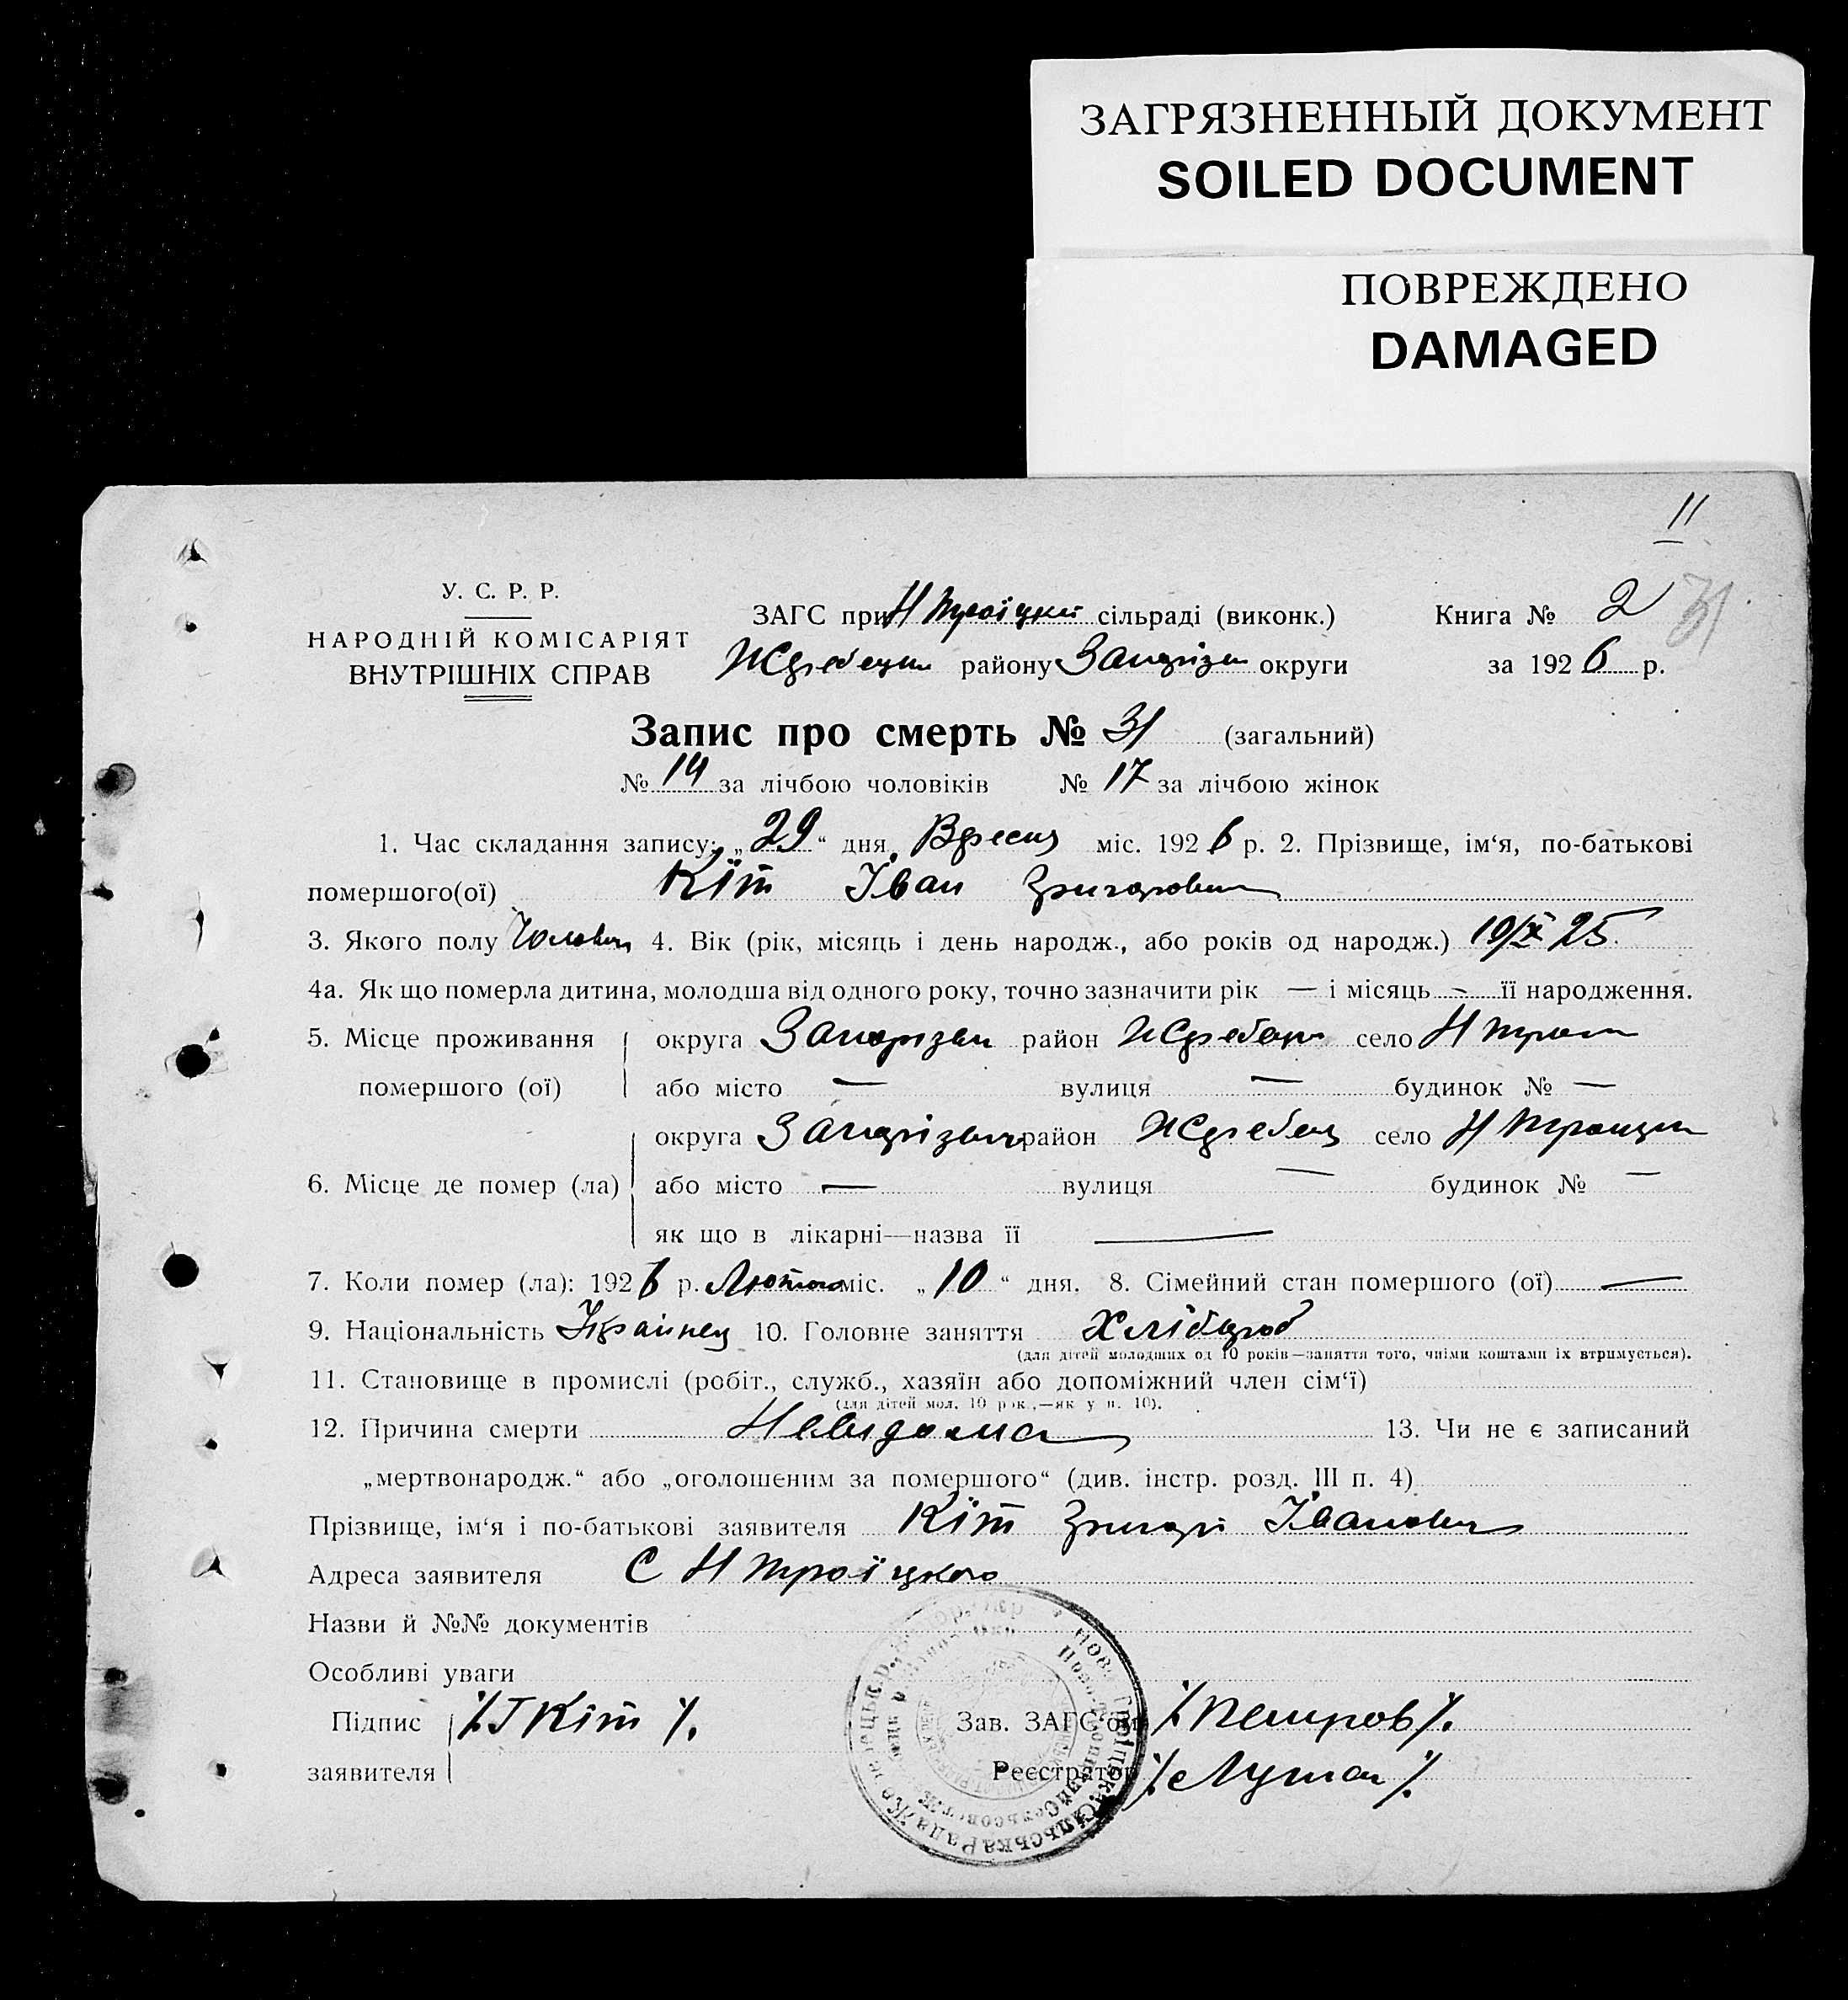 ЗАГРЯЗНЕННЫЙ ДОКУМЕНТ
SOILED DOCUMENT
ПОВРЕЖДЕНО
DAMAGED
11
У. С. Р. Р.
НАРОДНІЙ КОМІСАРІЯТ
ВНУТРІШНІХ СПРАВ
ЗАГС при Н Троїцкій сільраді (виконк.)
Жеребецьк району Запоріз округи
Книга № 2 31
за 1926 р.
Запис про смерть № 31 (загальний)
№ 14 за лічбою чоловіків № 17 за лічбою жінок
1. Час складання запису: „29“ дня Вересня міс. 1926 р. 2. Прізвище, ім‘я, по-батькові
помершого(ої) Кіт Іван Григорович
3. Якого полу Чоловіч 4. Вік (рік, місяць і день народж., або років од народж.) 19/IX 25.
4а. Як що померла дитина, молодша від одного року, точно зазначити рік — і місяць - її народження.
5. Місце проживання округа Запоріжжя район Жеребець село Н Троїц
помершого (ої) або місто — вулиця — будинок № —
округа Запоріжжя район Жеребець село Н Троицк
6. Місце де помер (ла) або місто — вулиця — будинок № —
як що в лікарні—назва її —
7. Коли помер (ла): 1926 р. Лютого міс. „10“ дня. 8. Сімейний стан помершого (ої) —
9. Національність Українец 10. Головне заняття Хлібороб
(для дітей молодших од 10 років—заняття того, чиїми коштами їх втримується).
11. Становище в промислі (робіт., служб., хазяїн або допоміжний член сім‘ї)
(для дітей мол. 10 рок.,—як у п. 10).
12. Причина смерти Невидома 13. Чи не є записаний
„мертвонародж.“ або „оголошеним за помершого“ (див. інстр. розд. III п. 4)
Прізвище, ім‘я і по-батькові заявителя Кіт Григорі Іванович
Адреса заявителя С Н Троїцкого
Назви й №№ документів
Особливі уваги
Підпис /Г Кіт/. Зав. ЗАГС‘ом /Петров/.
заявителя Реєстратор /Лутай/.